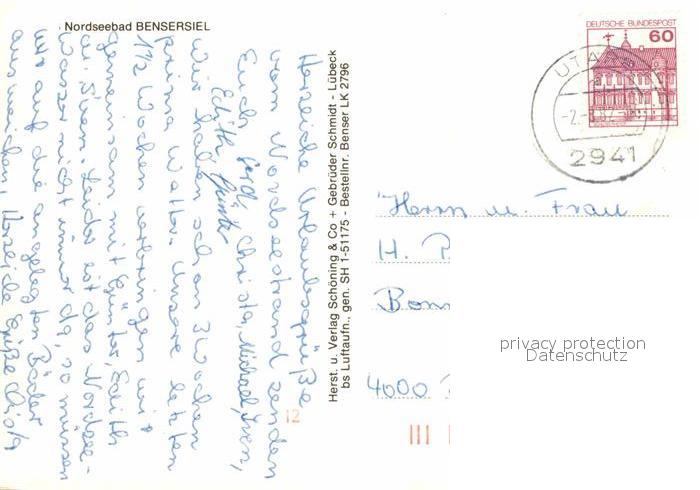 Nordseebad BENSERSIEL
Herzliche Urlaubsgrüße
vom Nordseestrand senden
Euch, Gerd, Christa, Michael, Sven,
Edith, Günter
Wir haben schon 3 Wochen
prima Wetter. Unsere letzten
1 1/2 Wochen verbringen wir
gemeinsam mit Günter, Edith
u. Sven. Leider ist das Nordsee-
Wasser nicht immer da, so müssen
wir auf die angelegten Bäder
ausweichen. Herzliche Grüße Christa
Herst. u. Verlag Schöning & Co + Gebrüder Schmidt - Lübeck
bs Luftaufn., gen. SH 1-51175 - Bestellnr. Benser LK 2796
DEUTSCHE BUNDESPOST
60
2941
Herrn u. Frau
H. P
Bonn
4000
privacy protection
Datenschutz
12